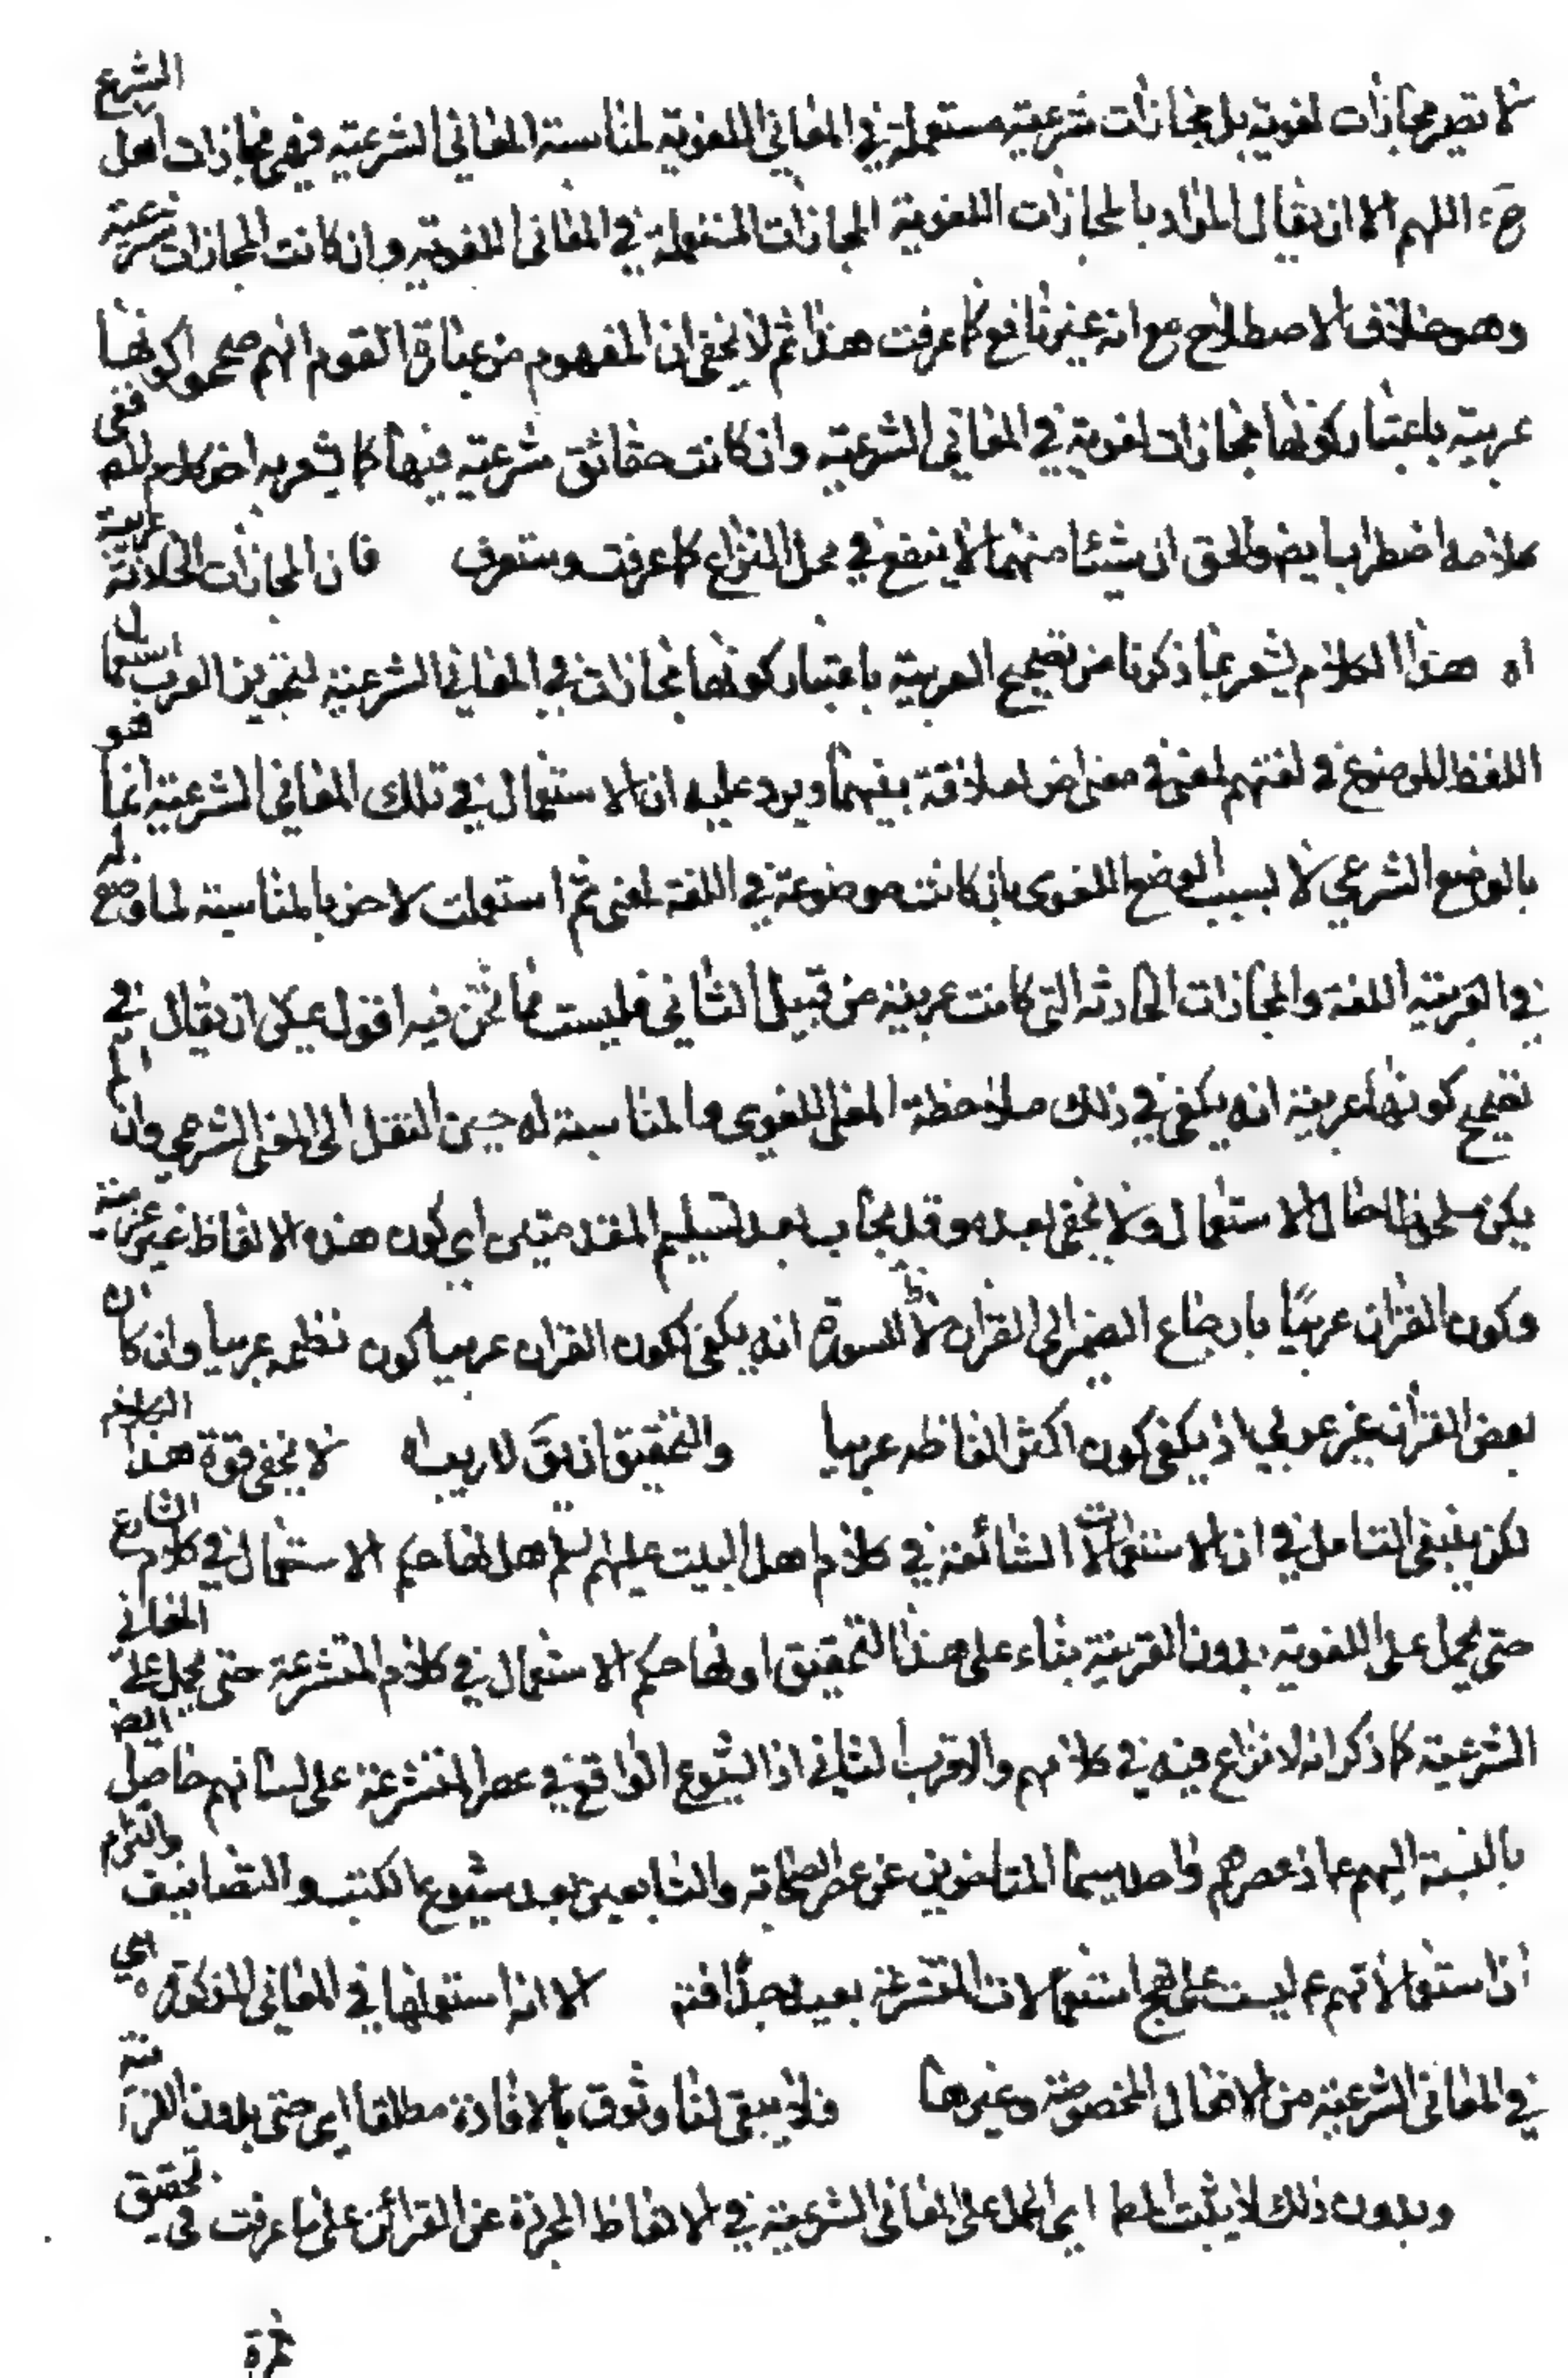 فلا تصير مجازات لغوية بل مجازات شرعية مستعملة في المعاني اللغوية لمناسبة المعاني الشرعية فهي مجازات اهل الشرع
ح اللهم الا ان يقال المراد بالمجازات اللغوية المجازات المستعملة في المعاني اللغوية وان كانت المجازات شرعية
وهو خلاف الاصطلاح مع انه غير نافع كما عرفت هذا ثم لا يخفى ان المفهوم من عبارة القوم انهم صححوا كونها
عربية باعتبار كونها مجازات لغوية في المعاني الشرعية وان كانت حقائق شرعية فيها كما يشعر به اخر كلام المص ففي
كلامه اضطراب ايضا والحق ان شيئا منهما لا ينفع في محل النزاع كما عرفت وستعرف فان المجازات الحادثة عربية
اه هذا الكلام يشعر بما ذكرنا من تصحيح العربية باعتبار كونها مجازات في المعاني الشرعية لتجويز العرب استعمال
اللفظ الموضوع في لغتهم لمعنى في معنى اخر لعلاقة بينهما ويرد عليه ان الاستعمال في تلك المعاني الشرعية انما هو
بالوضع الشرعي لا بسبب الوضع اللغوي بان كانت موضوعة في اللغة لمعنى ثم استعملت لاخر بالمناسبة لما وضع له
في العربية اللغة والمجازات الحادثة التي كانت عربية من قبيل الثاني فليست مما نحن فيه اقول يمكن ان يقال في
تصحيح كونها عربية انه يكفي في ذلك ملاحظة المعنى اللغوي والمناسبة له حين النقل الى المعنى الشرعي وان لم
يكن ملحوظا حال الاستعمال ولا يخفى بعده وقد يجاب بعد تسليم المقدمتين اي كون هذه الالفاظ غير عربية
وكون القران عربيا بارجاع الضمير الى القران لا السورة انه يكفي لكون القران عربيا كون نظمه عربيا وان كان
بعض القران غير عربي اذ يكفي كون اكثر الفاظه عربيا والتحقيق ان يق لا ريب اه لا يخفى قوة هذا الكلام
لكن ينبغي التامل في ان الاستعمالات الشائعة في كلام اهل البيت عليهم لم هل لها حكم الاستعمال في كلام الشارع
حتى يحمل على اللغوية بدون القرينة بناء على هذا التحقيق او لها حكم الاستعمال في كلام المتشرعة حتى يحمل على المعاني
الشرعية كما ذكر انه لا نزاع فيه في كلامهم والاقرب الثاني اذ الشيوع الواقع في عصر المتشرعة على لسانهم حاصل ايض
بالنسبة اليهم ع اذ عصرهم واحد سيما المتاخرين عن عصر الصحابة والتابعين بعد شيوع الكتب والتصانيف والتزام
ان استعمالاتهم ع ليست على نهج استعمالات المتشرعة بعيد جدا فتم الا انه استعملها في المعاني المذكورة اي
في المعاني الشرعية من الافعال المخصوصة وغيرها فلا يبقى لنا وثوق بالافادة مطلقا اي حتى بدون القرينة
وبدون ذلك لا يثبت المط اي الحمل على المعاني الشرعية في الالفاظ المجردة عن القرائن على ما عرفت في تحقيق
ثمرة